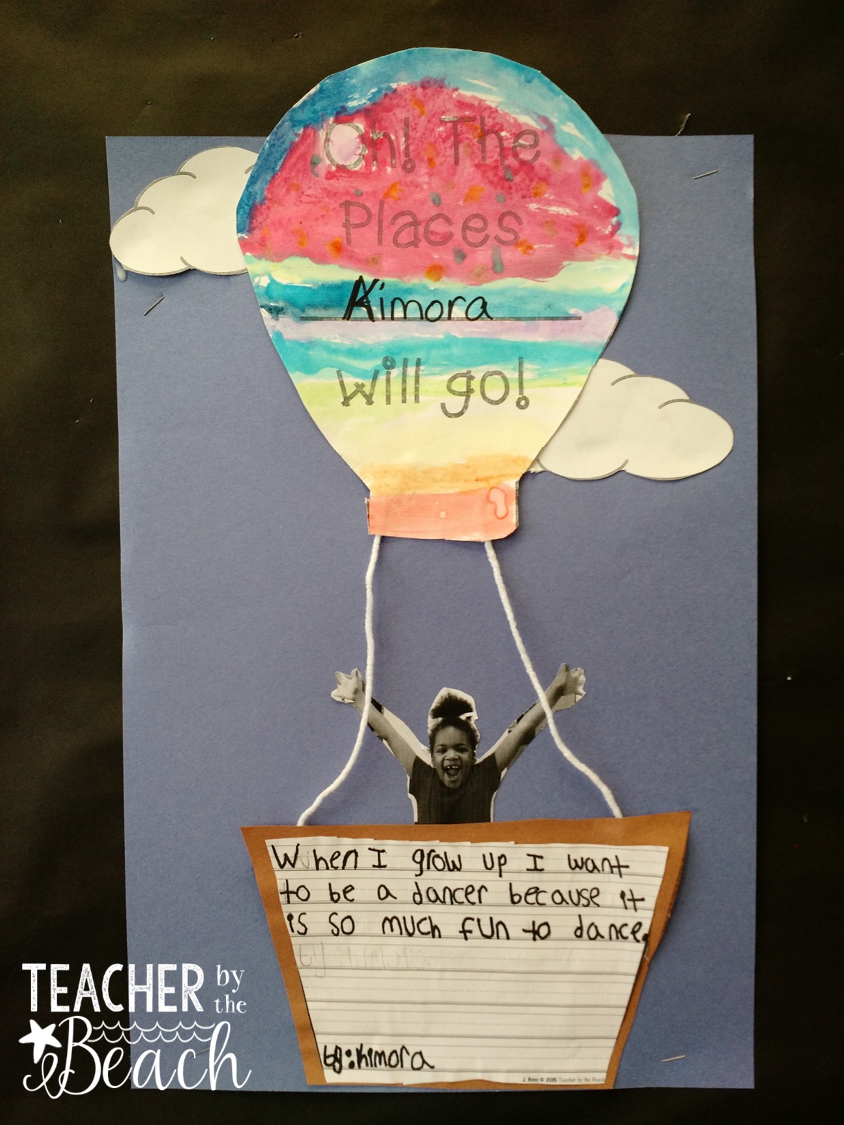 Oh! The
Places
Kimora
will go!
When I grow up I want
to be a dancer because it
is so much fun to dance.
by:kimora
J. Ries © 2015 Teacher by the Beach
TEACHER by
the
Beach